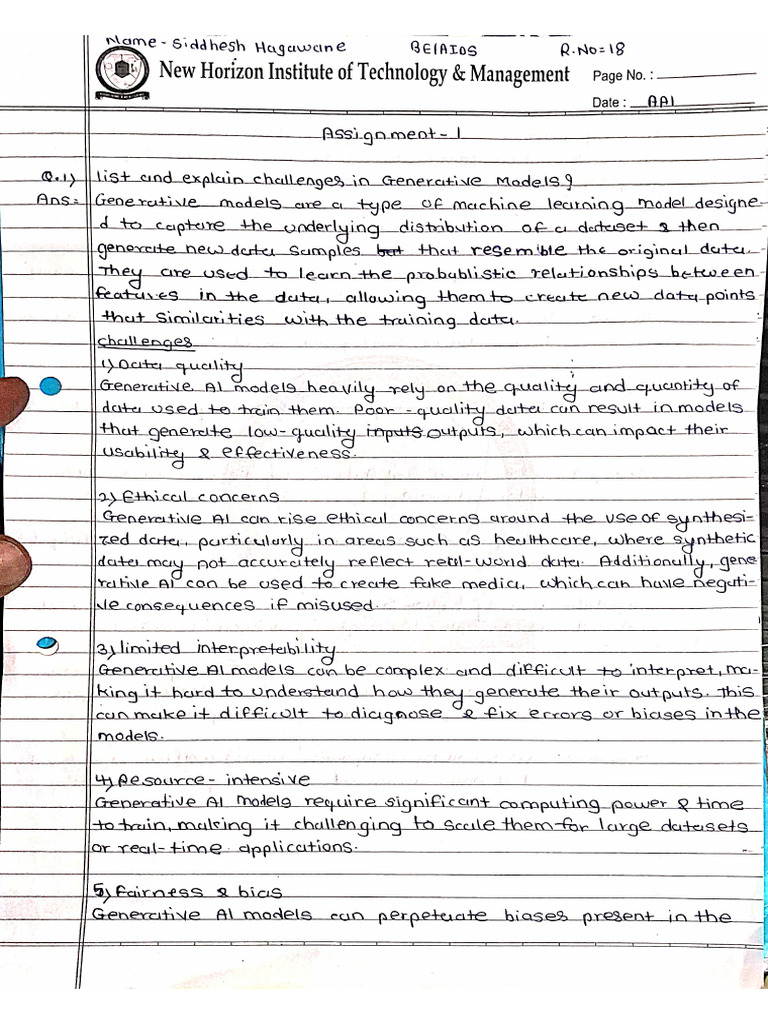 Name - Siddhesh Hagawane BE/AIDS R.No=18
New Horizon Institute of Technology & Management Page No. :
Date : AAI
Assignment - 1
Q.1) list and explain challenges in Generative Models?
Ans= Generative models are a type of machine learning model designe
d to capture the underlying distribution of a dataset & then
generate new data samples but that resemble the original data.
They are used to learn the probablistic relationships between
features in the data, allowing them to create new data points
that similarities with the training data.
challenges
1) Data quality
Generative AI models heavily rely on the quality and quantity of
data used to train them. Poor-quality data can result in models
that generate low-quality inputs outputs, which can impact their
usability & effectiveness.
2) Ethical concerns
Generative AI can rise ethical concerns around the use of synthesi-
zed data, particularly in areas such as healthcare, where synthetic
data may not accurately reflect real-world data. Additionally, gene
rative AI can be used to create fake media, which can have negati-
ve consequences if misused.
3) limited interpretability
Generative AI models can be complex and difficult to interpret, ma-
king it hard to understand how they generate their outputs. This
can make it difficult to diagnose & fix errors or biases in the
models.
4) Resource - intensive
Generative AI Models require significant computing power & time
to train, making it challenging to scale them for large datasets
or real-time applications.
5) Fairness & bias
Generative AI models can perpetuate biases present in the